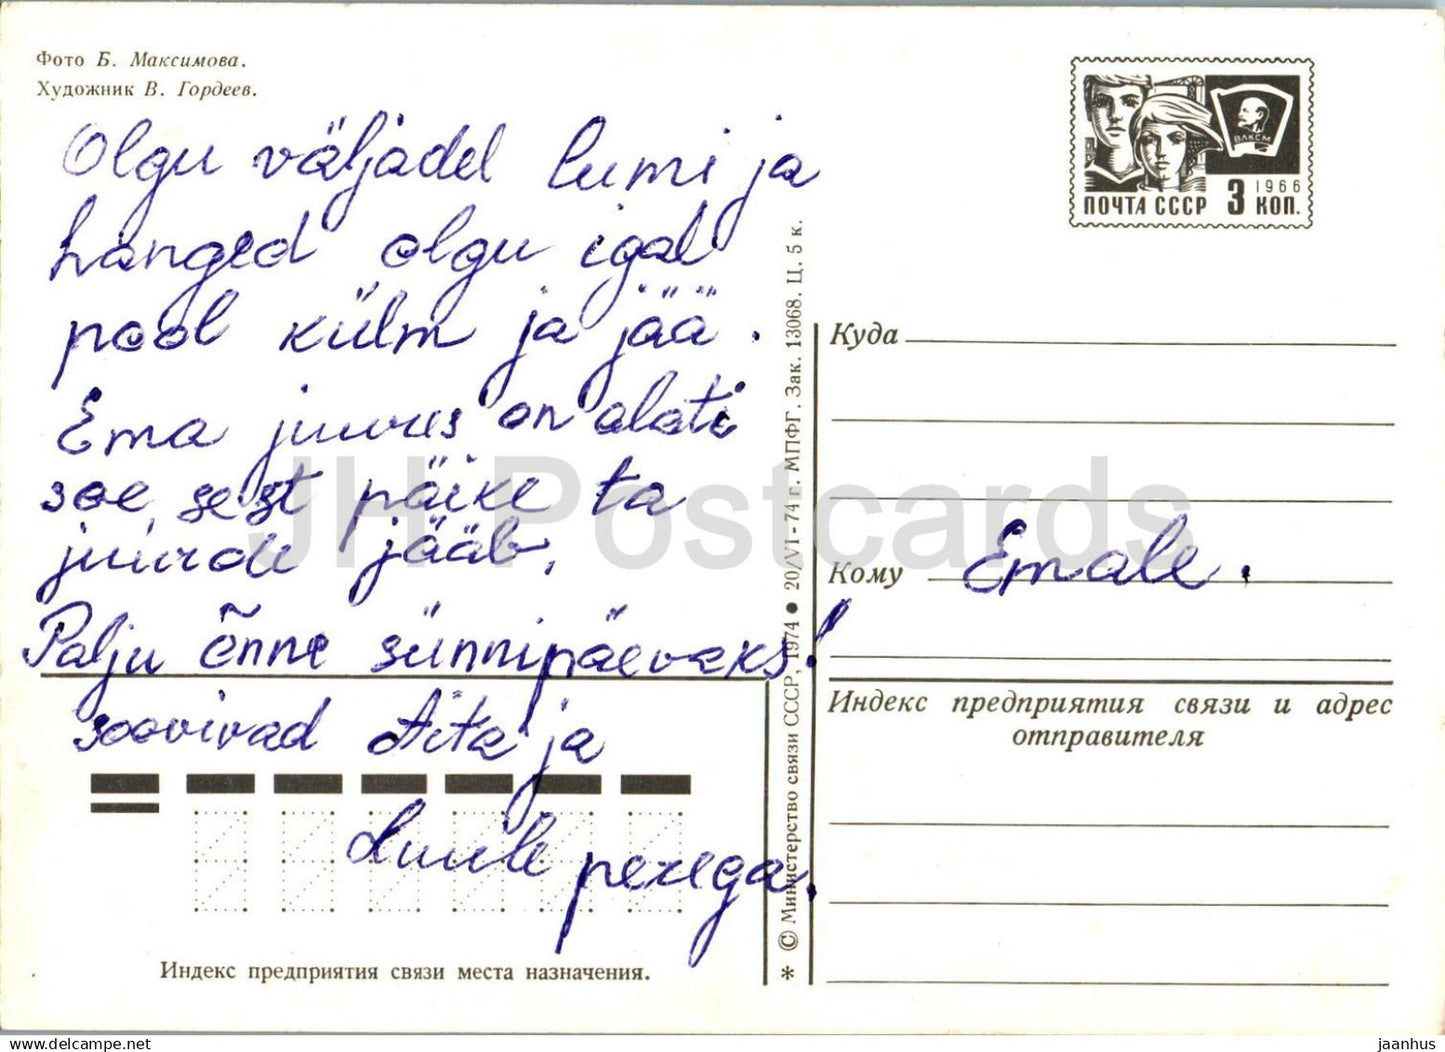 Фото Б. Максимова.
Художник В. Гордеев.
Olgu väljadel lumi ja
hanged olgu igal
pool külm ja jää.
Ema juures on alati
soe, sest päike ta
juurde jääb,
Palju õnne sünnipäevaks!
soovivad Aita ja
Luule perega.
Индекс предприятия связи места назначения.
* © Министерство связи СССР, 1974 • 20/VI - 74 г. МПФГ. Зак. 13068. Ц. 5 к.
ВЛКСМ
1966
ПОЧТА СССР 3 КОП.
Куда
Кому Emale.
Индекс предприятия связи и адрес
отправителя
JH Postcards
https://www.delcampe.net
jaanhus